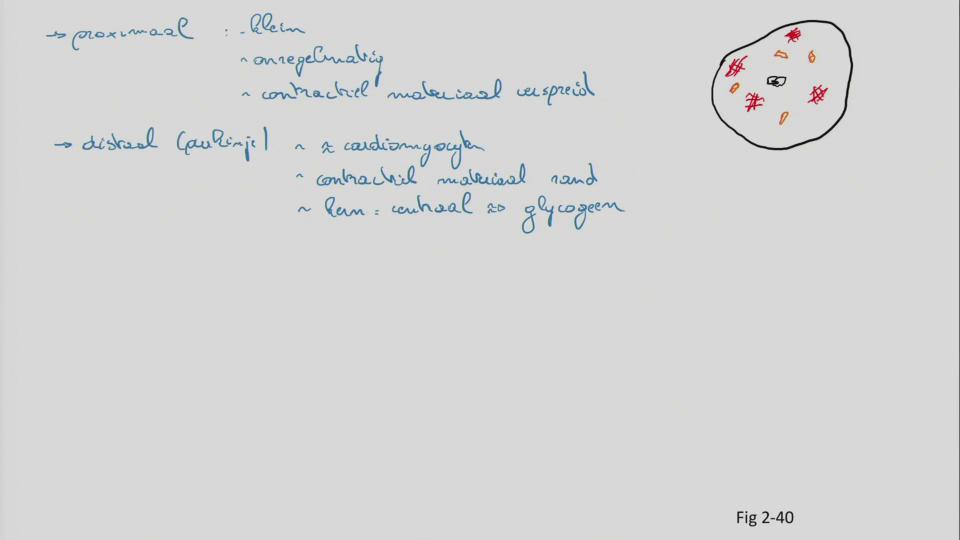 → proximaal : - klein
~ onregelmatig
~ contractiel materiaal verspreid
→ distaal (purkinje) ~ ≈ cardiomyocyten
~ contractiel materiaal rand
~ kern = centraal ⇒ glycogeen
Fig 2-40